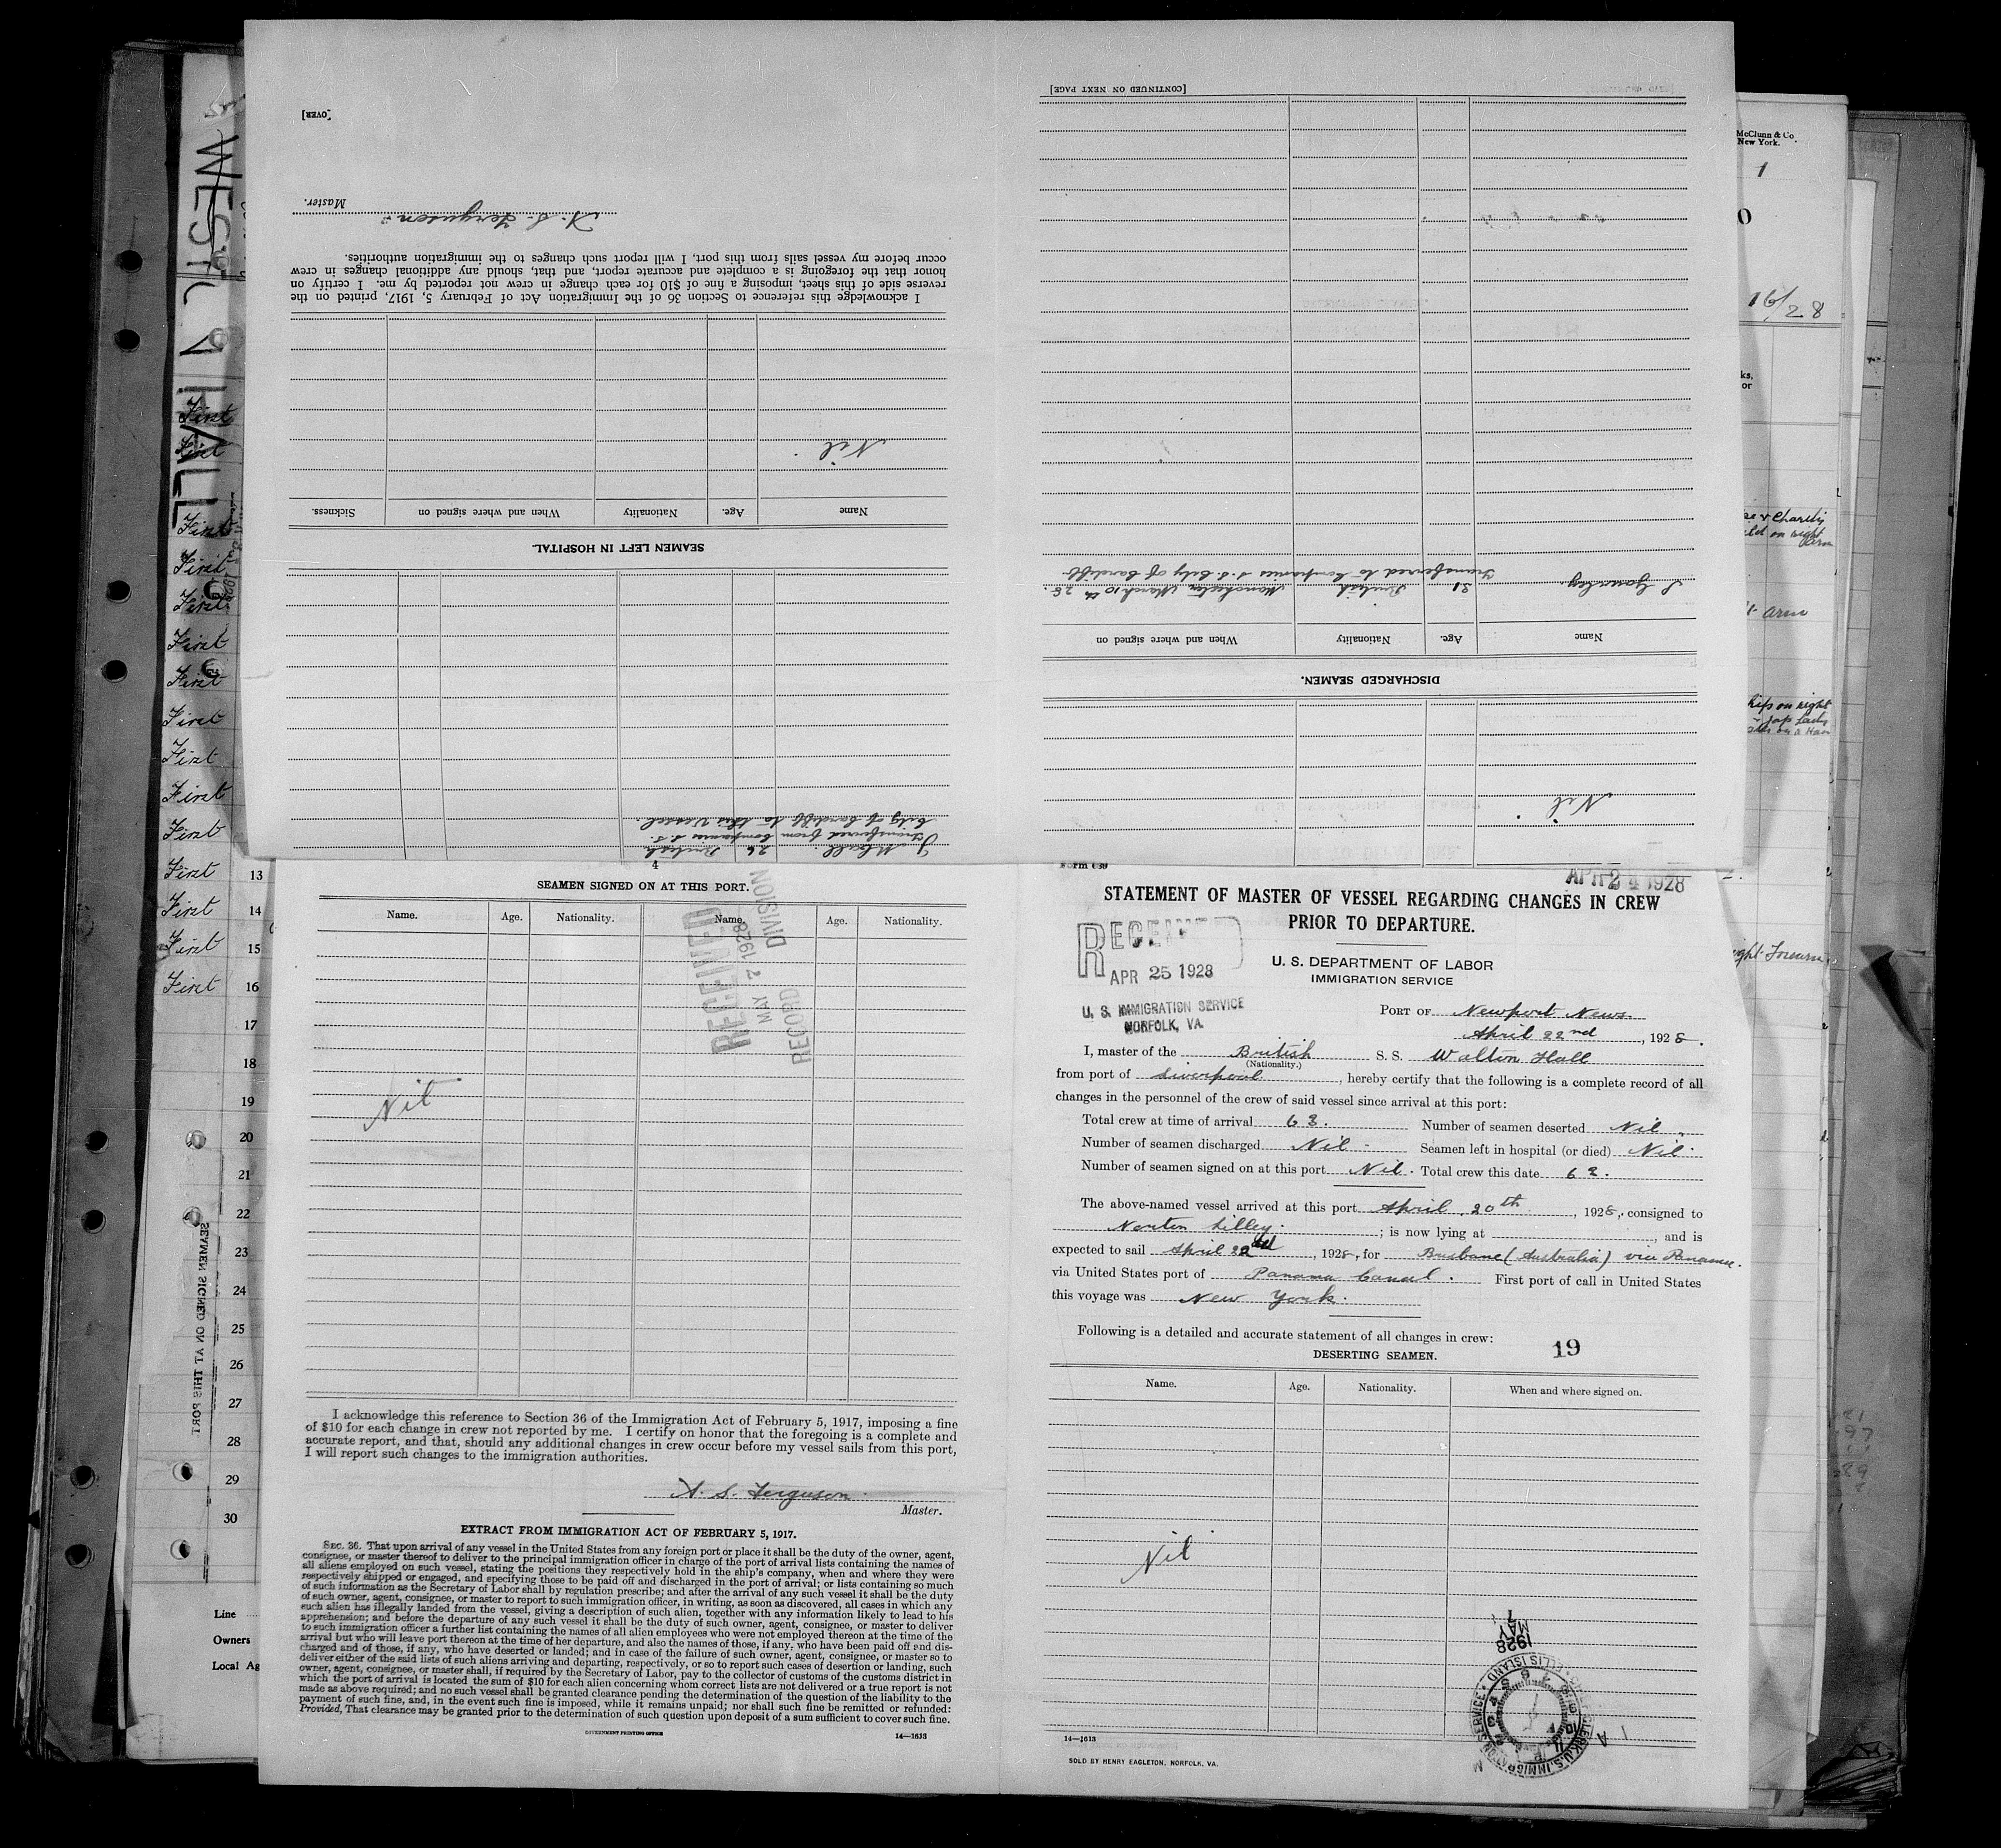 McClunn & Co
New York.
1
0
16/28
[OVER]
Master.
A. S. Ferguson
I acknowledge this reference to Section 36 of the Immigration Act of February 5, 1917, printed on the
reverse side of this sheet, imposing a fine of $10 for each change in crew not reported by me. I certify on
honor that the foregoing is a complete and accurate report, and that, should any additional changes in crew
occur before my vessel sails from this port, I will report such changes to the immigration authorities.
Nil
Name Age. Nationality When and where signed on Sickness.
SEAMEN LEFT IN HOSPITAL.
26 British
transferred from Companies S.S.
City of Cardiff to this Vessel.
[CONTINUED ON NEXT PAGE]
21 British Manchester March 10th 28.
transferred to Companies S.S. City of Cardiff
Name Age. Nationality When and where signed on
DISCHARGED SEAMEN.
Nil
First
First
First
First
First
First
First
First
First
First
First
First 13
First 14
First 15
First 16
17
18
19
20
21
22
23
24
25
26
27
28
29
30
SEAMEN SIGNED ON AT THIS PORT
Line
Owners
Local Ag
4
SEAMEN SIGNED ON AT THIS PORT.
Name. Age. Nationality. Name. Age. Nationality.
RECEIVED
MAY 2 1928
RECORD DIVISION
Nil
I acknowledge this reference to Section 36 of the Immigration Act of February 5, 1917, imposing a fine
of $10 for each change in crew not reported by me. I certify on honor that the foregoing is a complete and
accurate report, and that, should any additional changes in crew occur before my vessel sails from this port,
I will report such changes to the immigration authorities.
A. S. Ferguson
Master.
EXTRACT FROM IMMIGRATION ACT OF FEBRUARY 5, 1917.
SEC. 36. That upon arrival of any vessel in the United States from any foreign port or place it shall be the duty of the owner, agent,
consignee, or master thereof to deliver to the principal immigration officer in charge of the port of arrival lists containing the names of
all aliens employed on such vessel, stating the positions they respectively hold in the ship's company, when and where they were
respectively shipped or engaged, and specifying those to be paid off and discharged in the port of arrival; or lists containing so much
of such information as the Secretary of Labor shall by regulation prescribe; and after the arrival of any such vessel it shall be the duty
of such owner, agent, consignee, or master to report to such immigration officer, in writing, as soon as discovered, all cases in which any
such alien has illegally landed from the vessel, giving a description of such alien, together with any information likely to lead to his
apprehension; and before the departure of any such vessel it shall be the duty of such owner, agent, consignee, or master to deliver
to such immigration officer a further list containing the names of all alien employees who were not employed thereon at the time of the
arrival but who will leave port thereon at the time of her departure, and also the names of those, if any, who have been paid off and dis-
charged and of those, if any, who have deserted or landed; and in case of the failure of such owner, agent, consignee, or master so to
deliver either of the said lists of such aliens arriving and departing, respectively, or so to report such cases of desertion or landing, such
owner, agent, consignee, or master shall, if required by the Secretary of Labor, pay to the collector of customs of the customs district in
which the port of arrival is located the sum of $10 for each alien concerning whom correct lists are not delivered or a true report is not
made as above required; and no such vessel shall be granted clearance pending the determination of the question of the liability to the
payment of such fine, and, in the event such fine is imposed, while it remains unpaid; nor shall such fine be remitted or refunded:
Provided, That clearance may be granted prior to the determination of such question upon deposit of a sum sufficient to cover such fine.
GOVERNMENT PRINTING OFFICE 14—1613
Form 689
APR 24 1928
STATEMENT OF MASTER OF VESSEL REGARDING CHANGES IN CREW
PRIOR TO DEPARTURE.
RECEIVED
APR 25 1928
U. S. IMMIGRATION SERVICE
NORFOLK, VA.
U. S. DEPARTMENT OF LABOR
IMMIGRATION SERVICE
PORT OF Newport News
April 22nd, 1928.
I, master of the British S. S. Walton Hall
(Nationality.)
from port of Liverpool, hereby certify that the following is a complete record of all
changes in the personnel of the crew of said vessel since arrival at this port:
Total crew at time of arrival 62. Number of seamen deserted Nil
Number of seamen discharged Nil Seamen left in hospital (or died) Nil
Number of seamen signed on at this port Nil. Total crew this date 62.
The above-named vessel arrived at this port April 20th, 1928, consigned to
Norton Lilley; is now lying at , and is
expected to sail April 22nd, 1928, for Brisbane (Australia) via Panama.
via United States port of Panama Canal. First port of call in United States
this voyage was New York.
Following is a detailed and accurate statement of all changes in crew:
19
DESERTING SEAMEN.
Name. Age. Nationality. When and where signed on.
Nil
1928
MAY
1
14—1613
SOLD BY HENRY EAGLETON, NORFOLK, VA.